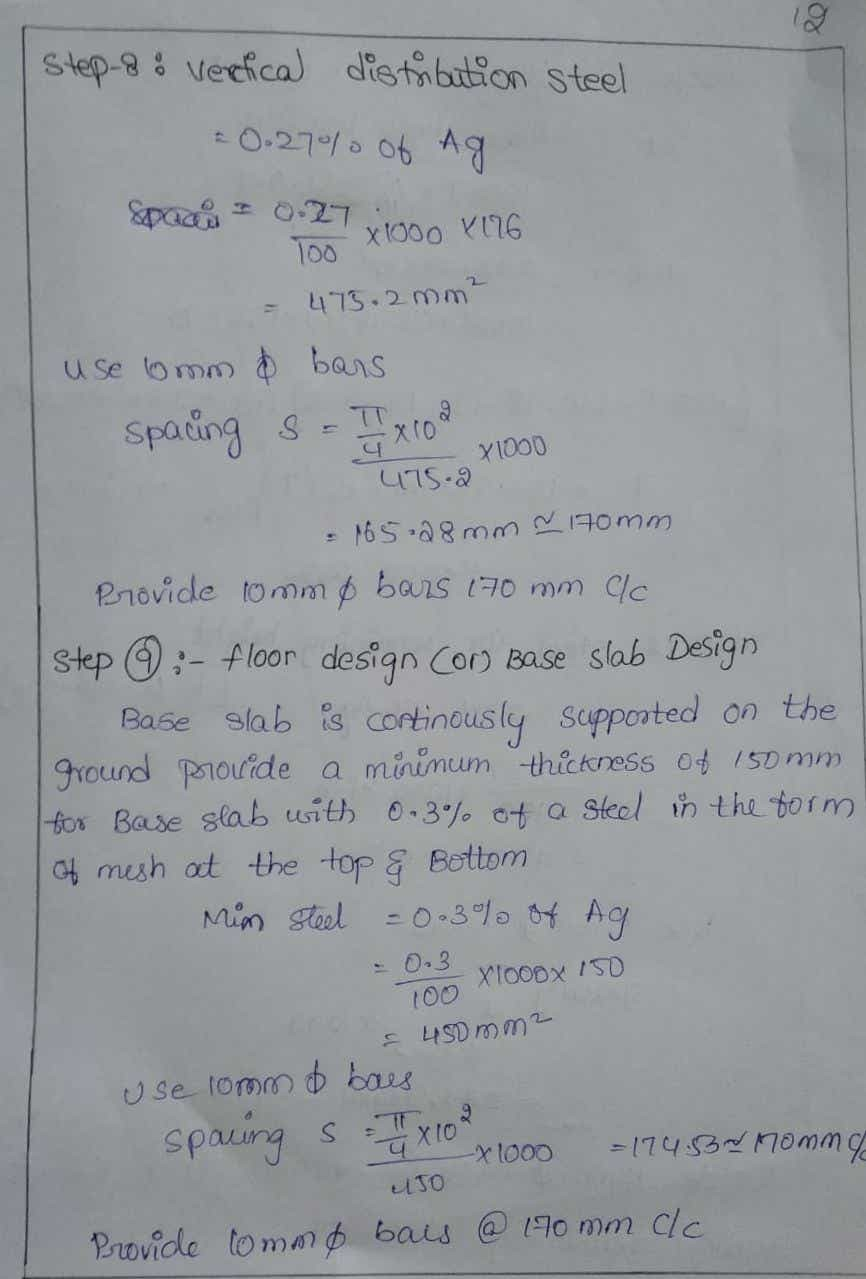 12
Step-8 : vertical distribution steel
= 0.27% of Ag
= 0.27/100 x1000 x176
= 475.2 mm²
use 10mm ϕ bars
Spacing S = π/4 x10² / 475.2 x1000
= 165.28 mm ≃ 170mm
Provide 10mm ϕ bars 170 mm c/c
Step ⑨ :- floor design (or) Base slab Design
Base slab is continously supported on the
ground provide a minimum thickness of 150mm
for Base slab with 0.3% of a steel in the form
of mesh at the top & Bottom
Min steel = 0.3% of Ag
= 0.3/100 x1000x 150
= 450 mm²
Use 10mm ϕ bars
Spacing S = π/4 x10² / 450 x1000 = 174.53 ≃ 170mm c/
Provide 10mm ϕ bars @ 170 mm c/c